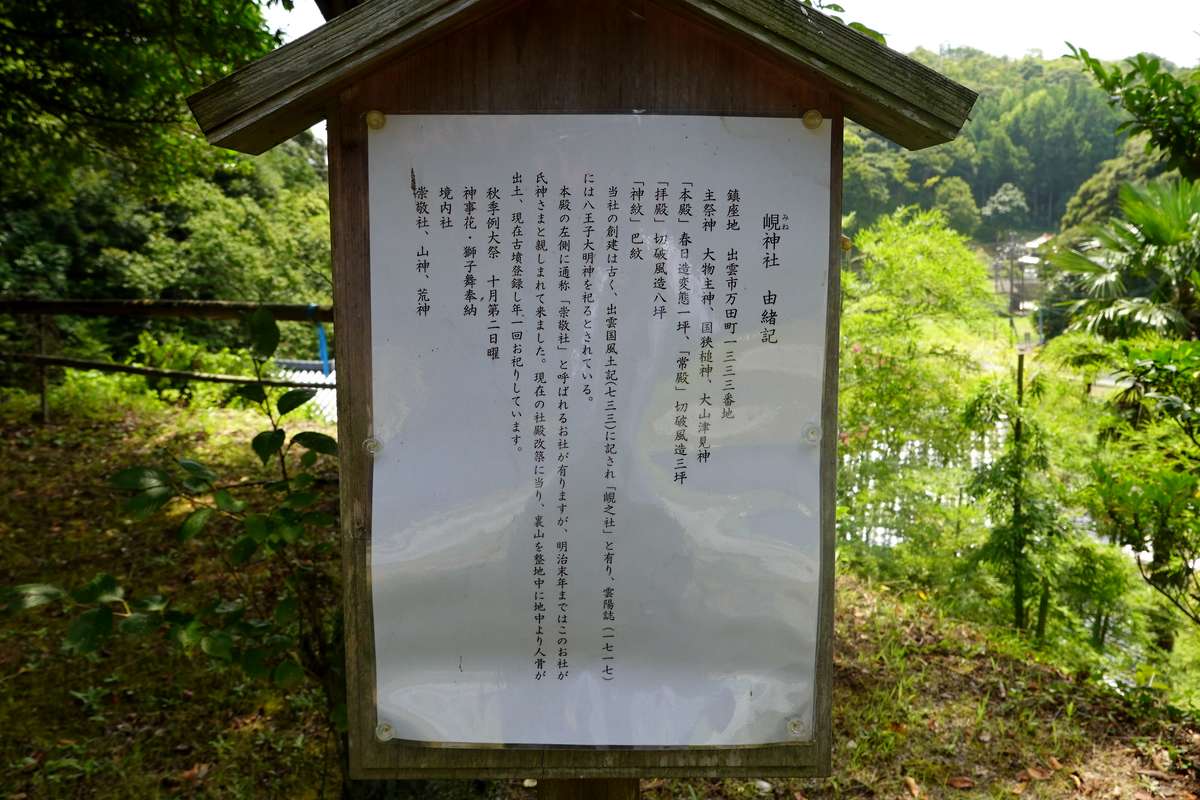 峴神社　由緒記
みね
鎮座地　出雲市万田町一三三三番地
主祭神　大物主神、国狭槌神、大山津見神
「本殿」春日造変態一坪、「常殿」切破風造三坪
「拝殿」切破風造八坪
「神紋」巴紋
当社の創建は古く、出雲国風土記(七三三)に記され「峴之社」と有り、雲陽誌(一七一七)
には八王子大明神を祀るとされている。
本殿の左側に通称「崇敬社」と呼ばれるお社が有りますが、明治末年まではこのお社が
氏神さまと親しまれて来ました。現在の社殿改築に当り、裏山を整地中に地中より人骨が
出土、現在古墳登録し年一回お祀りしています。
秋季例大祭　十月第二日曜
神事花・獅子舞奉納
境内社
崇敬社、山神、荒神